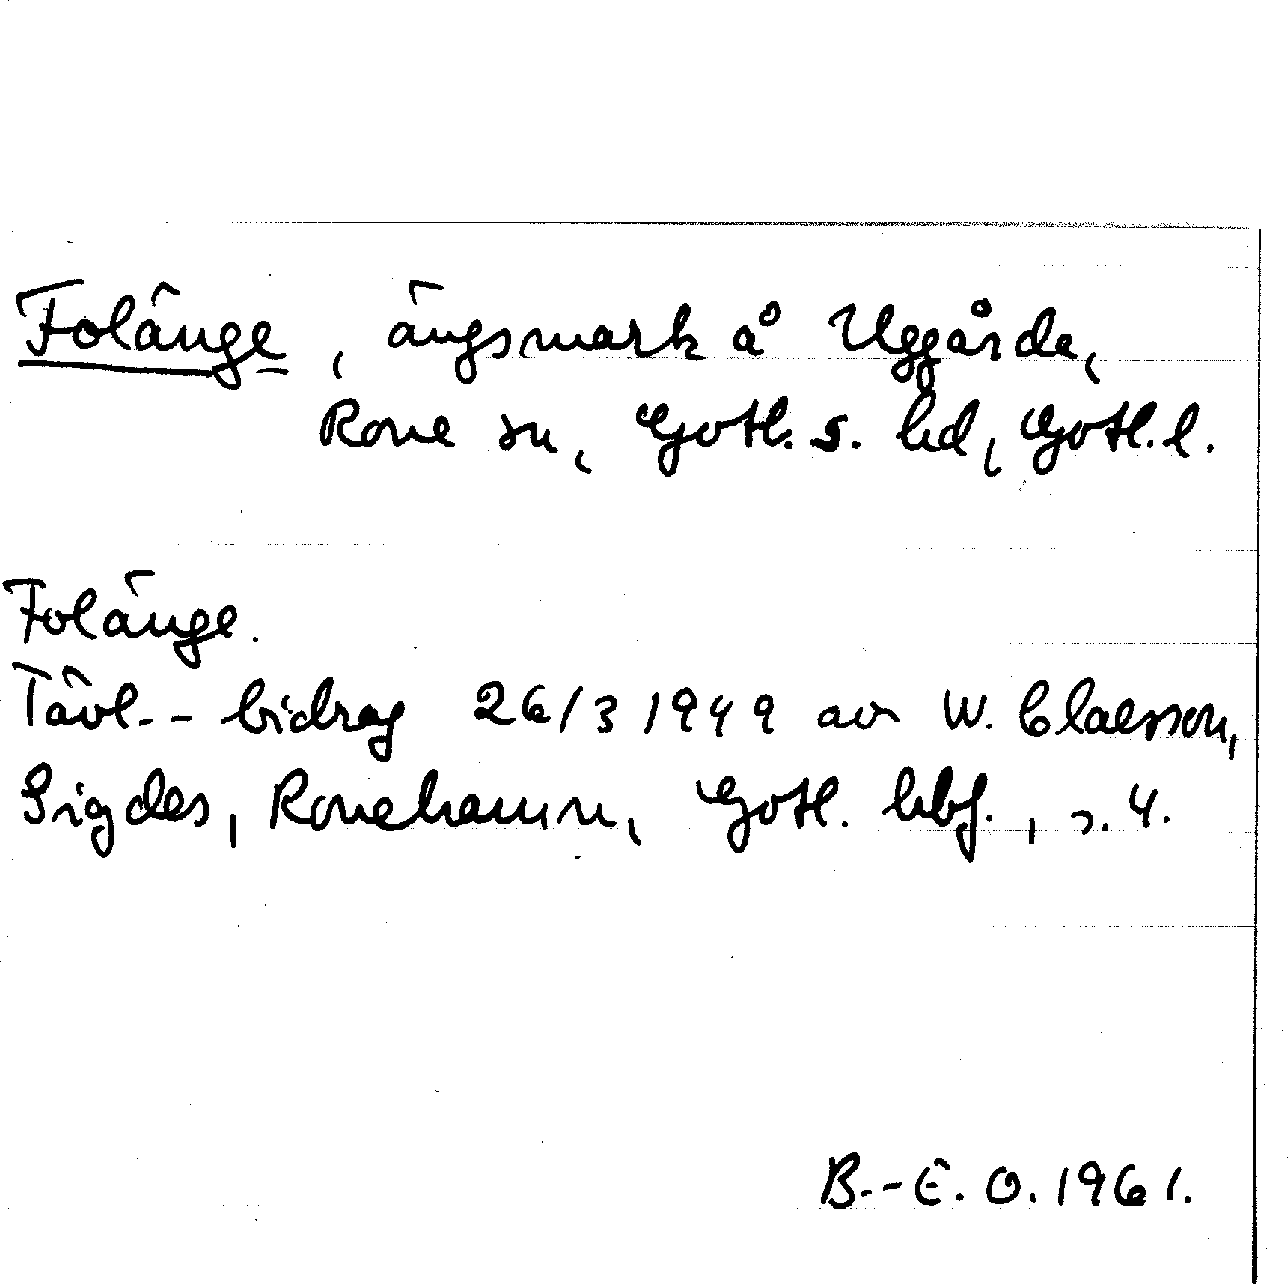 Folänge, ängsmark å Uggårda,
Rone sn, Gotl. s. hd, Gotl. l.
Folänge.
Tävl.-bidrag 26/3 1949 av W. Claesson,
Sigdes, Ronehamn, Gotl. hbf., s. 4.
B.-E. O. 1961.